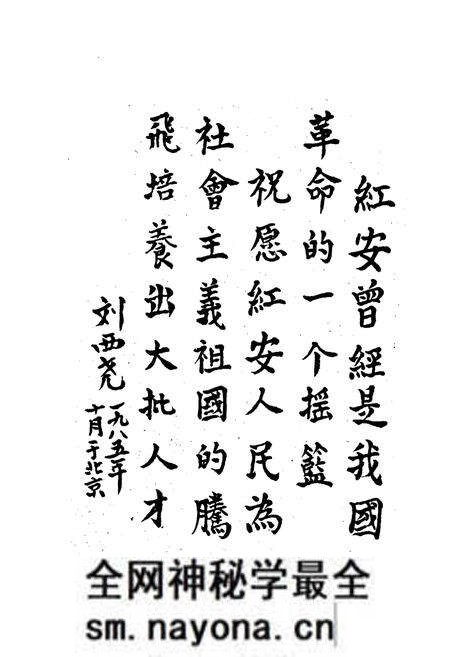 紅安曾經是我國
革命的一个摇籃
祝愿紅安人民為
社會主義祖國的騰
飛培養出大批人才
刘西尧
一九八五年
十月于北京
全网神秘学最全
sm.nayona.cn